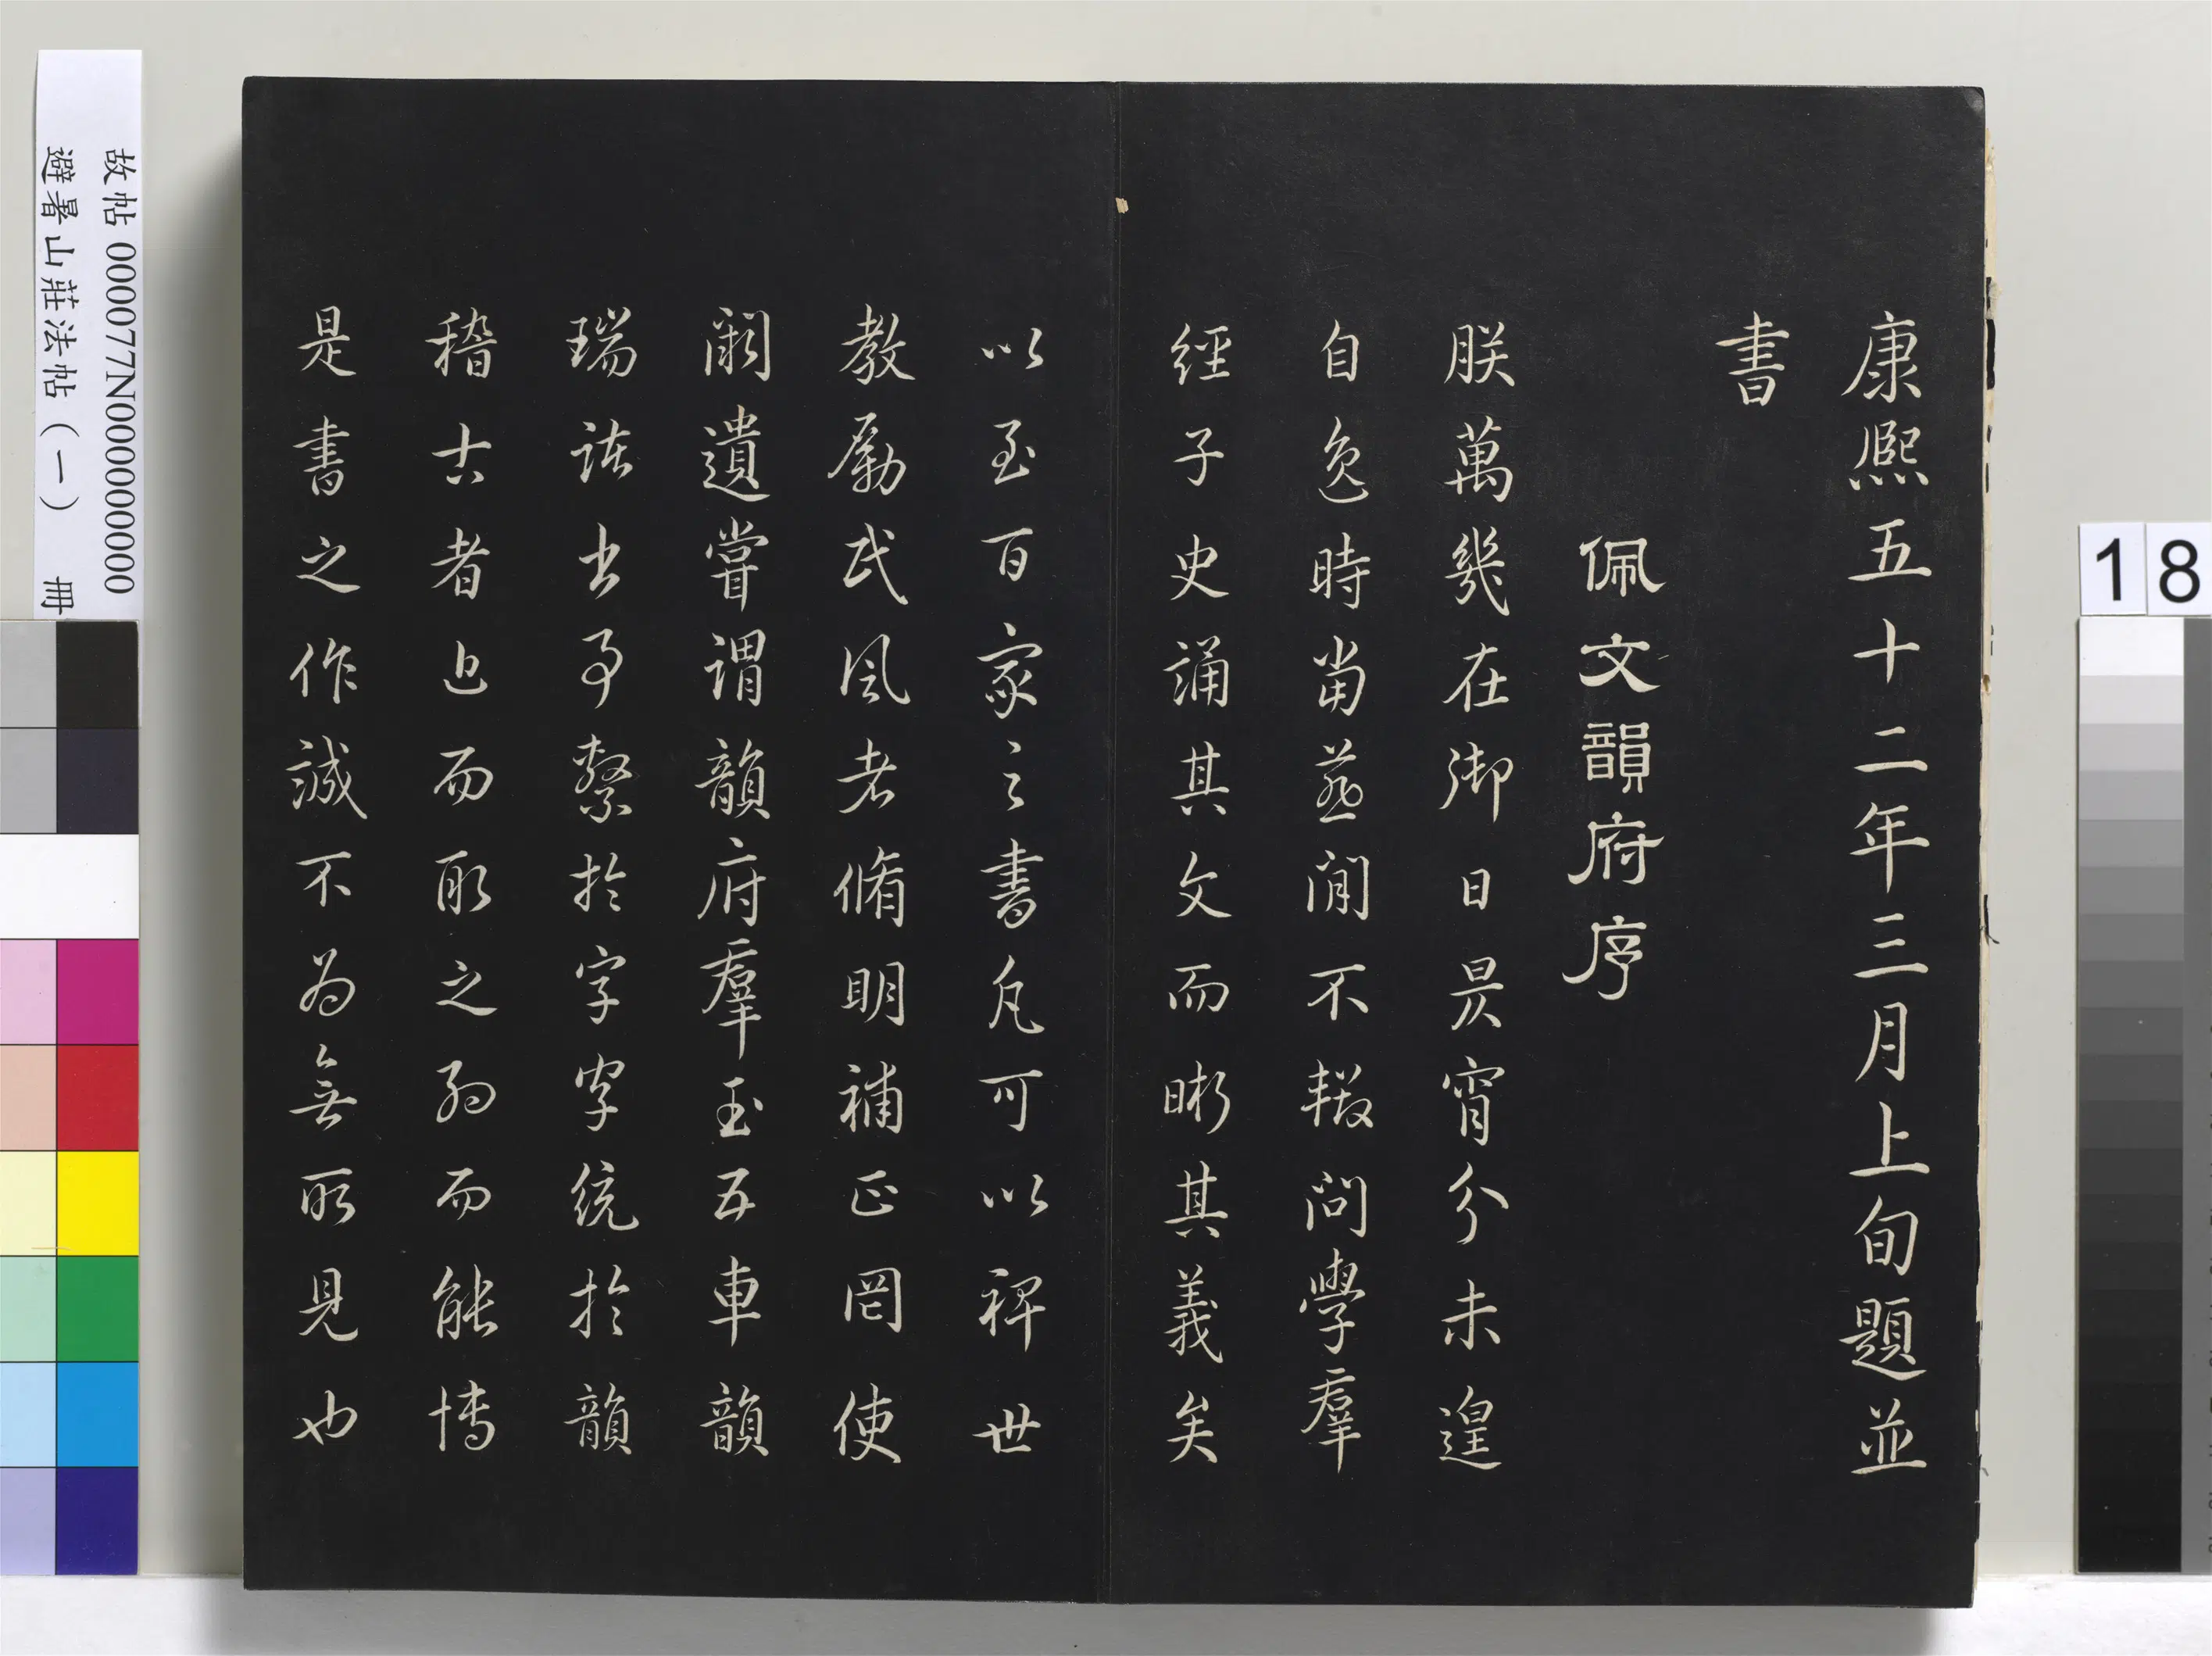 康熙五十二年三月上旬題並
書
佩文韻府序
朕萬幾在御日昃宵分未遑
自逸時當燕閒不輟問學羣
經子史誦其文而晰其義矣
以至百家之書凡可以裨世
教勵民風者脩明補正罔使
闕遺嘗謂韻府羣玉五車韻
瑞諸書事繫於字字統於韻
稽古者近而取之約而能博
是書之作誠不為無所見也
故帖 000077N000000000
避暑山莊法帖(一) 冊
18